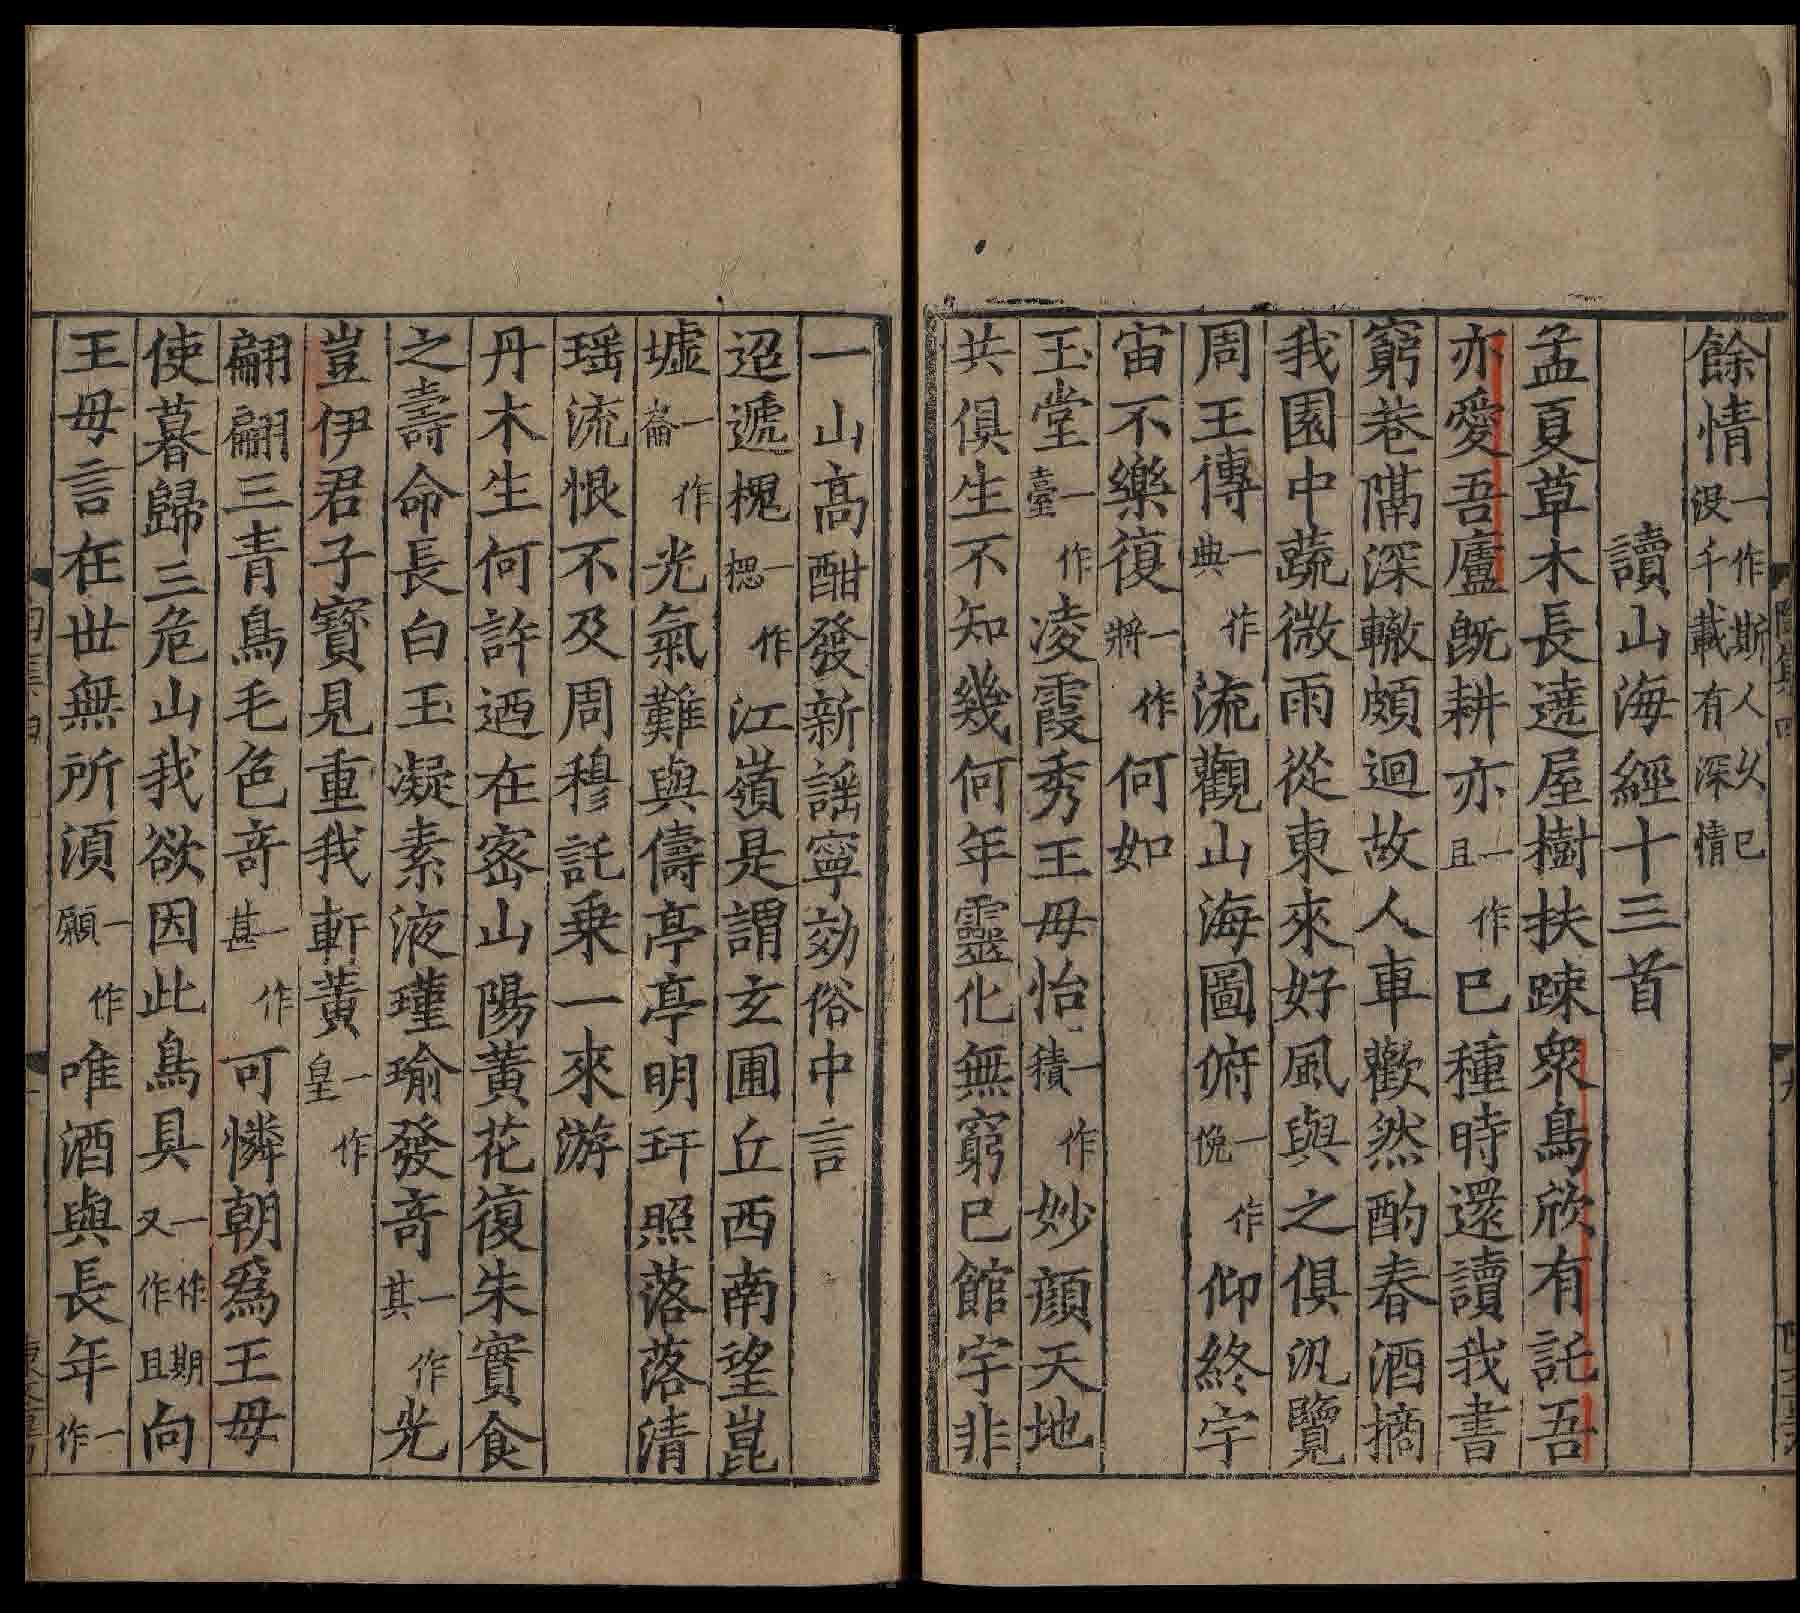 餘情一作斯人久已没千載有深情
讀山海經十三首
孟夏草木長遶屋樹扶踈衆鳥欣有託吾
亦愛吾廬既耕亦一作且已種時還讀我書
窮巷隔深轍頗迴故人車歡然酌春酒摘
我園中蔬微雨從東來好風與之俱汎覽
周王傳一作典流觀山海圖俯一作俛仰終宇
宙不樂復一作將何如
玉堂一作臺凌霞秀王母怡一作積妙顔天地
共俱生不知幾何年靈化無窮已館宇非
一山高酣發新謡寧効俗中言
迢遞槐一作楒江嶺是謂玄圃丘西南望崑
墟一作崙光氣難與儔亭亭明玕照落落清
瑶流恨不及周穆託乗一來游
丹木生何許迺在峚山陽黃花復朱實食
之壽命長白玉凝素液瑾瑜發竒一作其光
豈伊君子寳見重我軒黃一作皇
翩翩三青鳥毛色竒一作甚可憐朝爲王母
使暮歸三危山我欲因此鳥具一作期又作且向
王母言在世無所湏一作願唯酒與長年一作